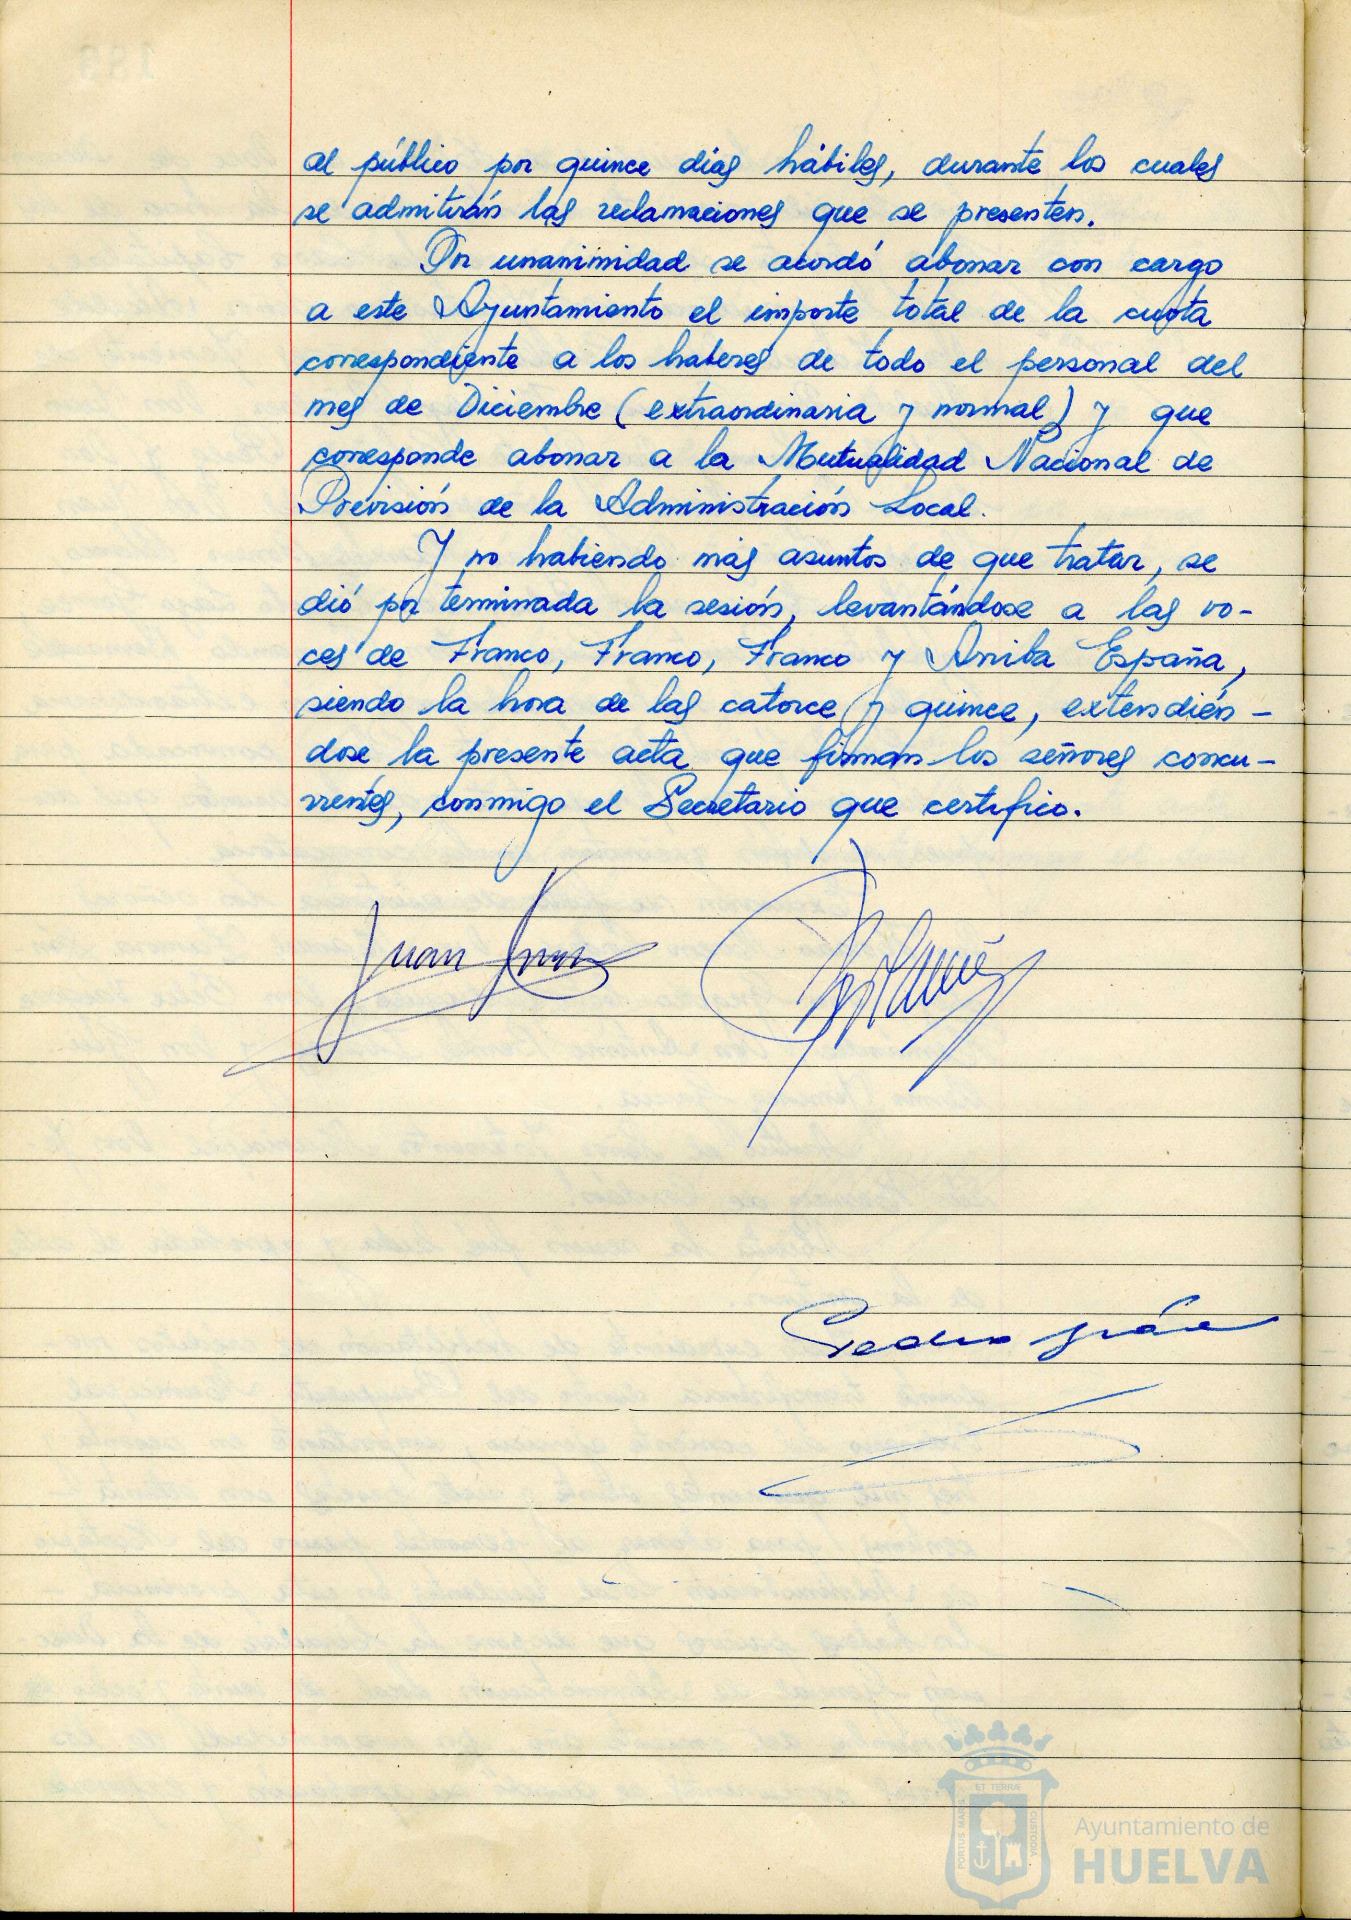 al público por quince días hábiles, durante los cuales
se admitirán las reclamaciones que se presenten.
Por unanimidad se acordó abonar con cargo
a este Ayuntamiento el importe total de la cuota
correspondiente a los haberes de todo el personal del
mes de Diciembre (extraordinaria y normal) y que
corresponde abonar a la Mutualidad Nacional de
Previsión de la Administración Local.
Y no habiendo más asuntos de que tratar, se
dió por terminada la sesión, levantándose a las vo-
ces de Franco, Franco, Franco y Arriba España,
siendo la hora de las catorce y quince, extendién-
dose la presente acta que firman los señores concu-
rrentes, conmigo el Secretario que certifico.
Juan
Pedro
PORTUS MARIS ET TERRAE CUSTODIA
Ayuntamiento de
HUELVA